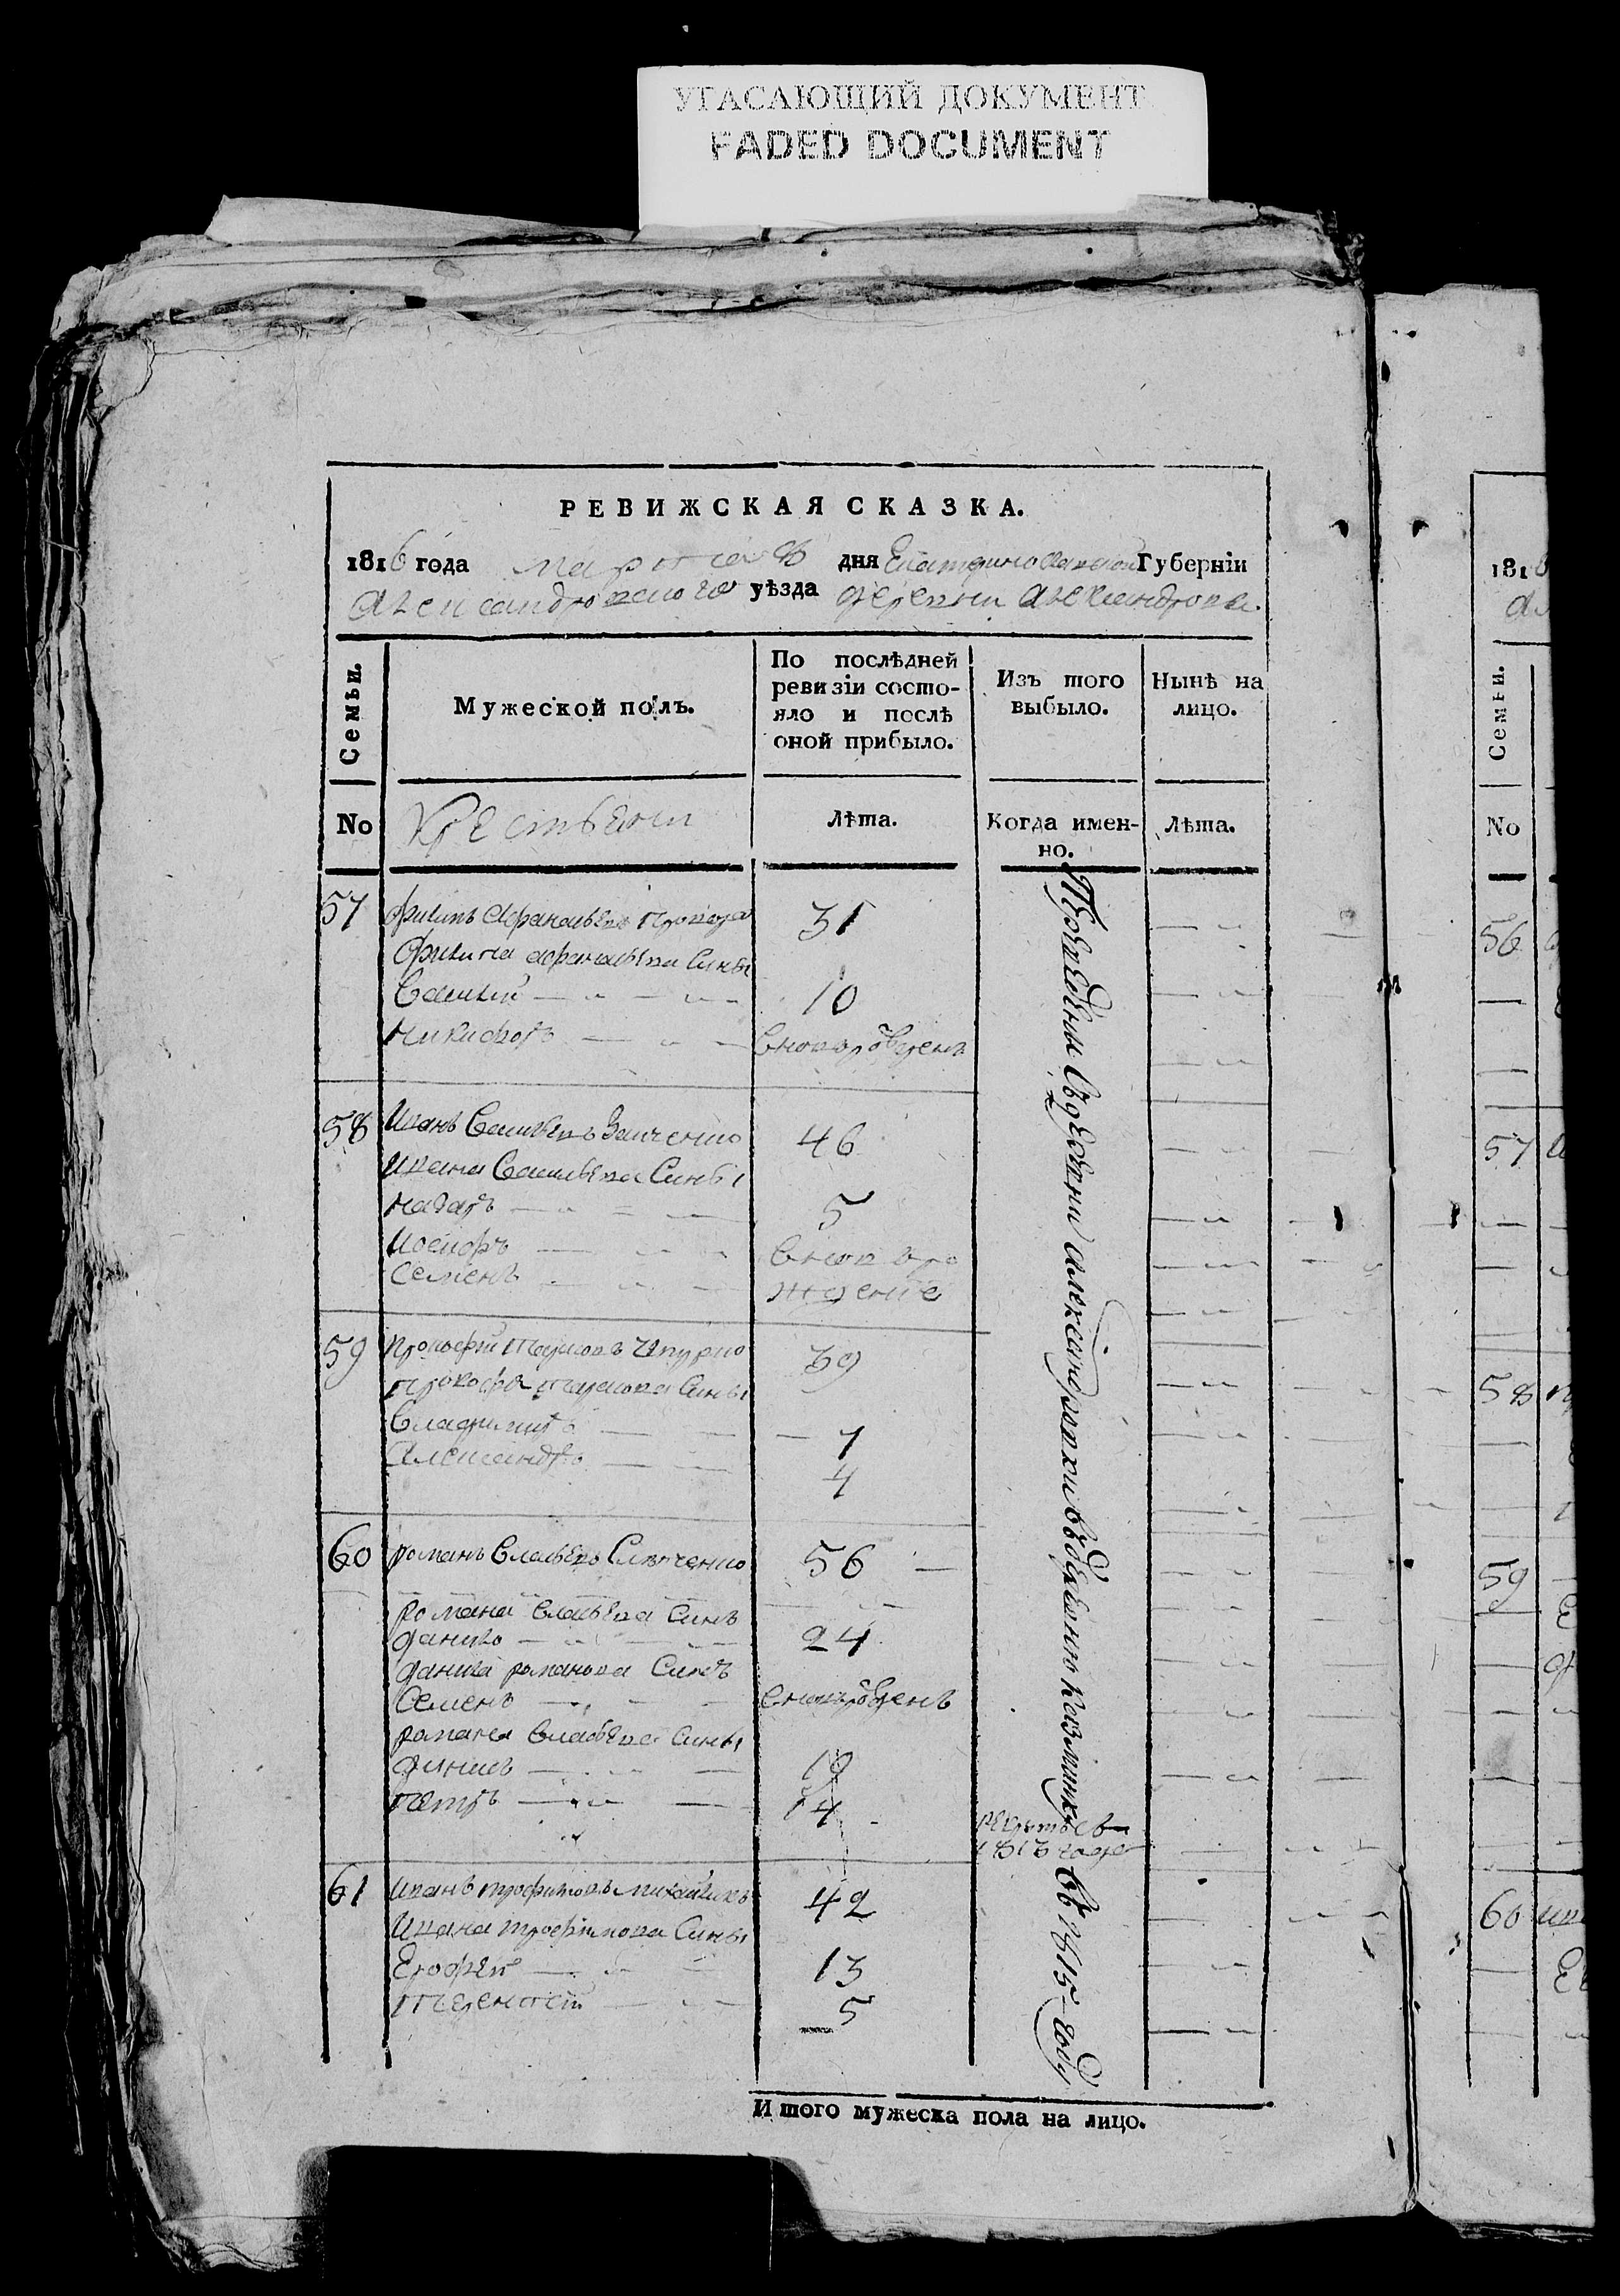 УГАСАЮЩИЙ ДОКУМЕНТ
FADED DOCUMENT
РЕВИЖСКАЯ СКАЗКА.
1816 года марта 8 дня Екатеринославской Губерніи
Александровского уѣзда деревни Александровки.
Семьи.
Мужеской полъ.
По послѣдней ревизіи состояло и послѣ оной прибыло.
Изъ того выбыло.
Нынѣ на лицо.
No
Крестьяни
лѣта.
Когда именно.
лѣта.
57 Филипъ Афанасьевъ 31
Филипа афанасьева Сины
Василий 10
Никифоръ вновърожденъ
58 Иванъ Васильевъ Заиченко 46
Ивана Васильева Сины
Назаръ 5
Иосифъ вновъ ро
Семенъ ждение
59 Прокофий Тарасовъ 39
Прокофа Тарасова Сины
Владимиръ 7
Александръ 4
60 романъ Власьевъ 56
Романа власьева Синъ
данило 24
данила романова Синъ
Семенъ вновърожденъ
романа Власьева Сины
денисъ 19
петръ 14
рекрутъ в
1813 годе
61 Иванъ трофимовъ михайликъ 42
Ивана трофимова Сины
Ерофей 13
терентей 5
Переведени Въ деревни александровки въ деревню Казминку въ 1815 году
Итого мужеска пола на лицо.
1816
Семьи.
No
56
57
58
59
60